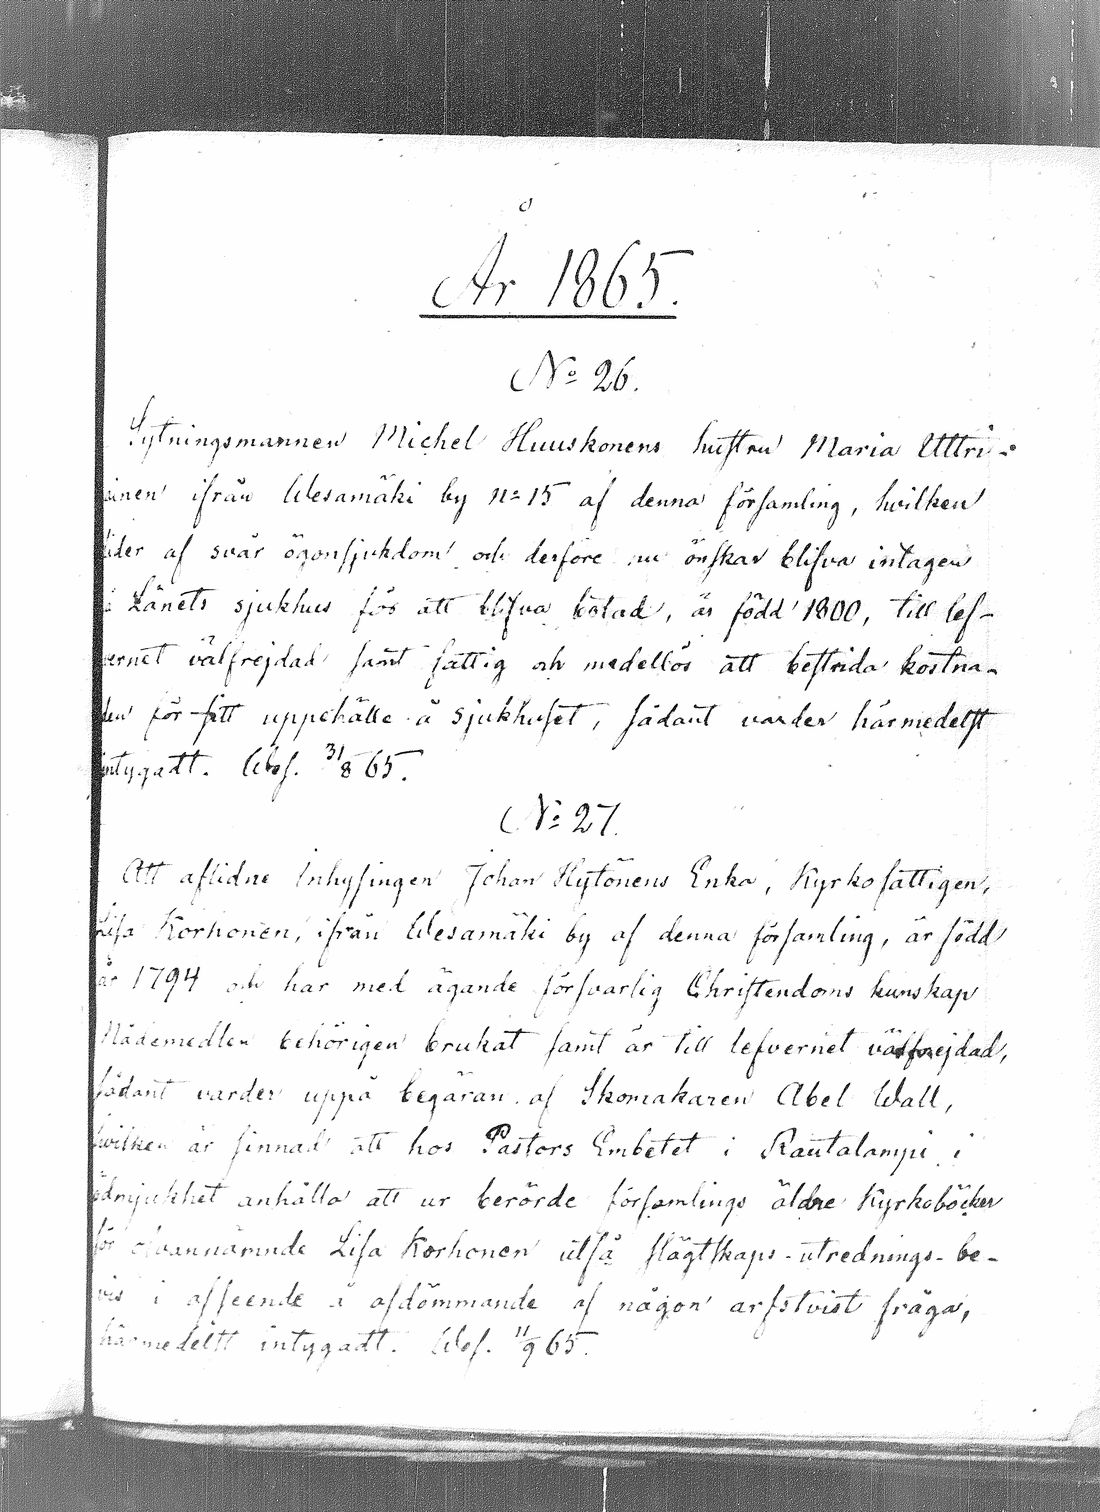 År 1865.
No 26.
Sytningsmannen Michel Huuskonens hustru Maria Uttri-
ainen ifrån Wesamäki by no 15 af denna församling, hvilken
lider af svår ögonsjukdom och derföre nu önskar blifva intagen
å Länets sjukhus för att blifva botad, är född 1800, till lef-
vernet välfrejdad samt fattig och medellös att bestrida kostna-
den för sitt uppehälle å sjukhuset, sådant varder härmedelst
intygadt. Wes. 31/8 65.
No 27.
Att aflidne Inhysingen Johan Hytönens Enka, Kyrkofattigen,
Lisa Korhonen, ifrån Wesamäki by af denna församling, är född
år 1794 och har med ägande försvarlig Christendoms kunskap
Nådemedlen behörigen brukat samt är till lefvernet välfrejdad,
sådant varder uppå begäran af Skomakaren Abel Wall,
hvilken är sinnad att hos Pastors Embetet i Rautalampi i
ödmjukhet anhålla att ur berörde församlings äldre Kyrkoböcker
för ofvannämnde Lisa Korhonen utfå slägtskaps-utrednings-be-
vis i afseende å afdömmande af någon arfstvist fråga,
härmedelst intygadt. Wes. 11/9 65.